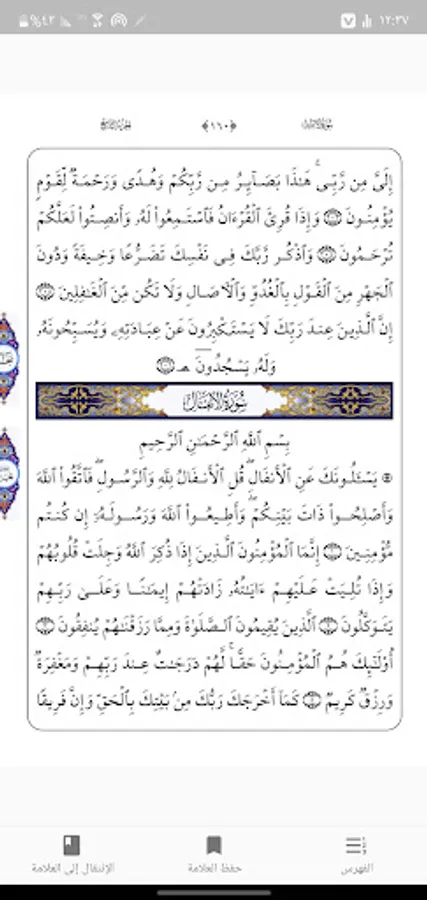 ١٢:٣٧
%٤٢
﴿١٦٠﴾
إِلَىَّ مِن رَّبِّى ۚ هَٰذَا بَصَآئِرُ مِن رَّبِّكُمْ وَهُدًى وَرَحْمَةٌ لِّقَوْمٍ
يُؤْمِنُونَ ۝ وَإِذَا قُرِئَ الْقُرْءَانُ فَاسْتَمِعُوا لَهُۥ وَأَنصِتُوا لَعَلَّكُمْ
تُرْحَمُونَ ۝ وَاذْكُر رَّبَّكَ فِى نَفْسِكَ تَضَرُّعًا وَخِيفَةً وَدُونَ
الْجَهْرِ مِنَ الْقَوْلِ بِالْغُدُوِّ وَالْءَاصَالِ وَلَا تَكُن مِّنَ الْغَٰفِلِينَ ۝
إِنَّ الَّذِينَ عِندَ رَبِّكَ لَا يَسْتَكْبِرُونَ عَنْ عِبَادَتِهِۦ وَيُسَبِّحُونَهُۥ
وَلَهُۥ يَسْجُدُونَ ۝
سُورَةُ الْأَنفَالِ
بِسْمِ اللَّهِ الرَّحْمَٰنِ الرَّحِيمِ
يَسْـَٔلُونَكَ عَنِ الْأَنفَالِ ۖ قُلِ الْأَنفَالُ لِلَّهِ وَالرَّسُولِ ۖ فَاتَّقُوا اللَّهَ
وَأَصْلِحُوا ذَاتَ بَيْنِكُمْ ۖ وَأَطِيعُوا اللَّهَ وَرَسُولَهُۥٓ إِن كُنتُم
مُّؤْمِنِينَ ۝ إِنَّمَا الْمُؤْمِنُونَ الَّذِينَ إِذَا ذُكِرَ اللَّهُ وَجِلَتْ قُلُوبُهُمْ
وَإِذَا تُلِيَتْ عَلَيْهِمْ ءَايَٰتُهُۥ زَادَتْهُمْ إِيمَٰنًا وَعَلَىٰ رَبِّهِمْ
يَتَوَكَّلُونَ ۝ الَّذِينَ يُقِيمُونَ الصَّلَوٰةَ وَمِمَّا رَزَقْنَٰهُمْ يُنفِقُونَ ۝
أُو۟لَٰٓئِكَ هُمُ الْمُؤْمِنُونَ حَقًّا ۚ لَّهُمْ دَرَجَٰتٌ عِندَ رَبِّهِمْ وَمَغْفِرَةٌ
وَرِزْقٌ كَرِيمٌ ۝ كَمَآ أَخْرَجَكَ رَبُّكَ مِنۢ بَيْتِكَ بِالْحَقِّ وَإِنَّ فَرِيقًا
الفهرس
حفظ العلامة
الإنتقال إلى العلامة